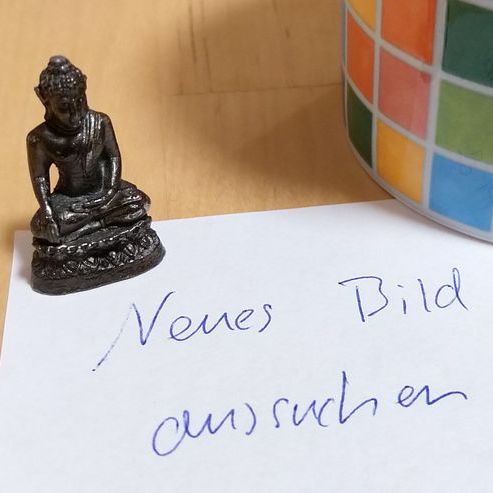 Neues Bild
aussuchen